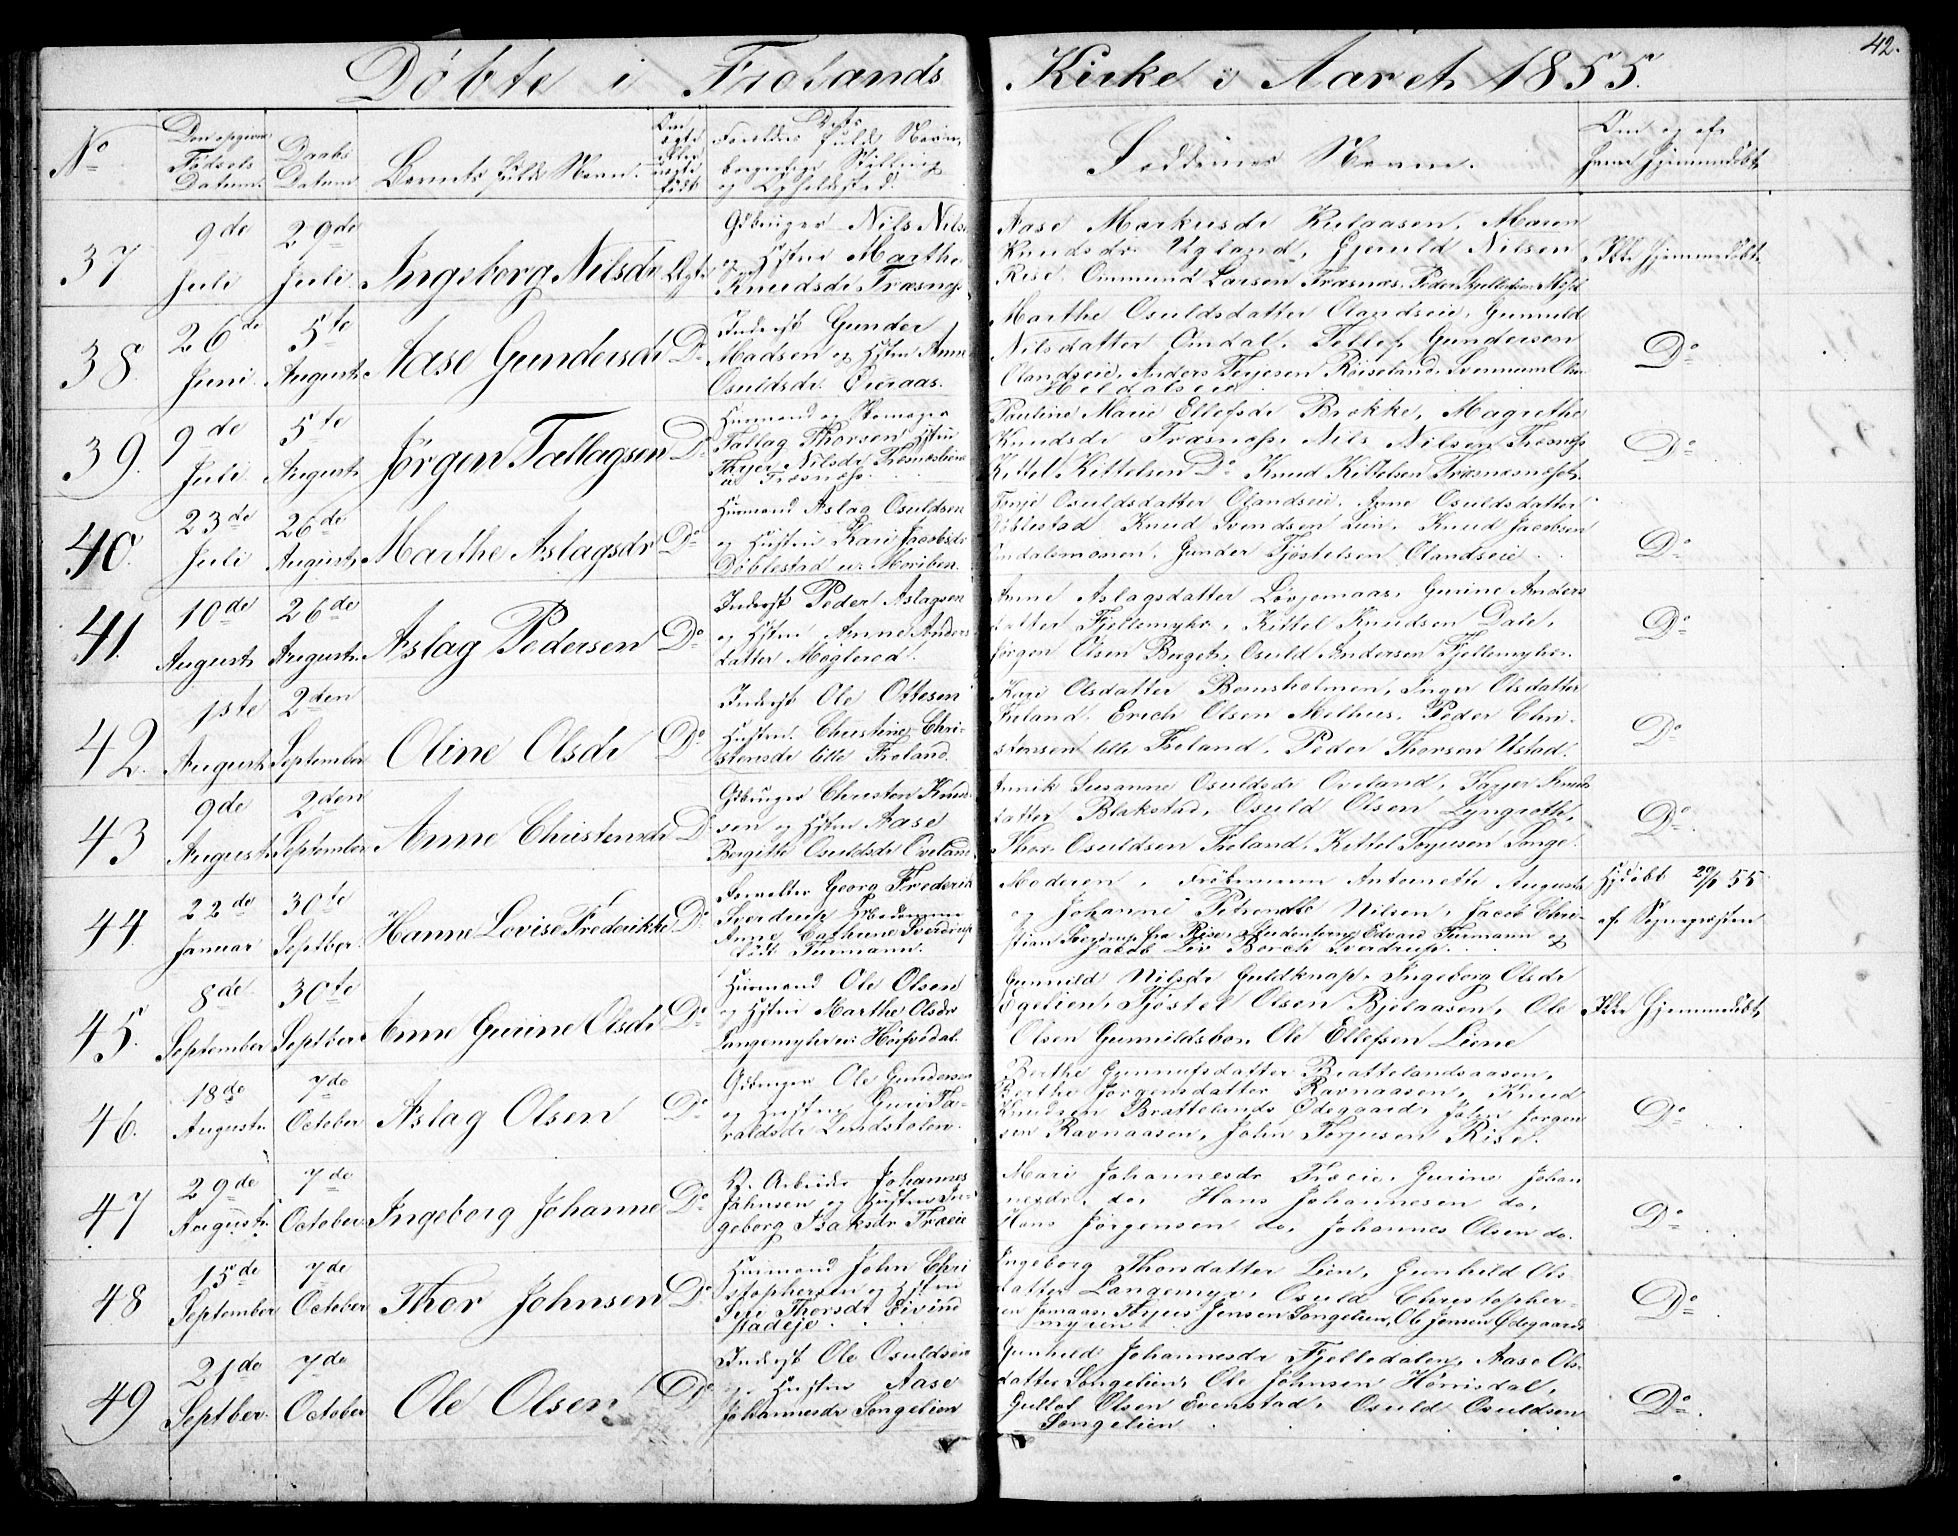 42.
Döbte i Frolands Kirke i Aaret 1855.
No
Den opgivne Fødsels Datum.
Daabs Datum
Barnets fulde Navn.
Om ægte eller uægte født
Forældres fulde Navn, borgerlige Stilling og Opholdssted.
Faddernes Navn.
Om og af hvem hjemmedøbt
37
9de Juli
29de Juli
Ingeborg Nilsdr
Ægte
Gbruger Nils Nils
og Hstru Marthe
Knudsdr Træsnæs
Aase Markusdr Kielaasen, Maren
Knudsdr. Ugland, Gjeruld Nilsen
Rise. Ommund Larsen Træsnæs. Peder
Ikke hjemmedøbt
38.
26de Juni
5te August
Aase Gundersdr
Do
Inderst Gunder
Madsen og Hstru Anne
Osuldsdr.
Marthe Osuldsdatter Olandseie. Gunuld
Nilsdatter Lindal. Tellef Gundersen
Olandseie. Anders Terjesen Røiseland. Svennum Olsen
Heldalseie
Do
39.
9de Juli
5te August
Jørgen Tallagsen
Do
Husmand og Skomager
Tallag Thorsen Hstru
Nilsdr
u. Træsnæs.
Pauline Marie Ellefsdr Brekke, Magrethe
Knudsdr Træsnæs. Nils Nilsen Træsnæs
Kittel Kittelsen Do Knud Kittelsen
Do
40.
23de Juli
26de August
Marthe Aslagsdr
Do
Husmand Aslag Osuldsen
og Hustru Kari Jacobsdr
Döblestad u. Moriben.
Tonje Osuldsdatter Olandseie. Anne Osuldsdatter
Döblestad Knud Svendsen Lien. Knud Jacobsen
Lindalsmonen. Gunder Tjøstelsen Olandseie.
Do
41.
10de August
26de August
Aslag Pedersen
Do
Inderst Peder Aslagsen
og Hstru Anne Anders
datter Møglered.
Anne Aslagsdatter Løvjomaas. Gurine Anders
datter Fjellemyhr. Kittel Knudsen Dale.
Jørgen Olsen Berget. Osuld Andersen Fjellemyhr.
Do
42.
1ste August
2den September
Oline Olsdr
Do
Inderst Ole Ottesen
Hustru. Christine Chri-
stensdr lille Froland.
Kari Olsdatter Bomsholmen, Inger Olsdatter
Froland. Erich Olsen Melhus. Peder Chri-
stensen lille Froland. Peder Thorsen Ustad.
Do
43
9de August
2den September
Anne Christensdr
Do
Gbruger Christen Knud
sen og Hstru Aase
Bergitte Osuldsdr Oveland
Annik Susanne Osuldsdr Oveland. Tarjer Knuds
datter Blakstad, Osuld Olsen Lyngroth,
Thor Osuldsen Froland. Kittel Terjusen Songe.
Do
44.
22de Januar
30te Septber.
Hanne Lovise Frederikke
Do
Forvalter Georg Frederik
Sverdrup Madamme
Anne Cathrine Sverdrup
født Thumann.
Moderen, Frökenerne Antonette Augusta
og Johanne Petrondle Nilsen, Jacob Chri-
stian Sverdrup fra Risør, Studenterne Edvard Thumann og
Jacob Liv Borch Sverdrup.
Hjdøbt 55
af Sognepresten
45.
8de September
30te Septber
Anne Gurine Olsdr
Do
Husmand Ole Olsen
og Hstru Marthe Olsdr
Langemyhr
Gunuld Nilsdr Guldknap. Ingeborg Olsdr
Egelien, Tjöstel Olsen Bjelaasen, Ole
Olsen Gunnildsbo. Ole Ellefsen Liene
Ikke hjemmedøbt
46.
18de August.
7de October
Aslag Olsen
Do
Gbruger Ole Gundersen
og Hustru Guri Ta-
raldsdr Lindstolen.
Berthe Gunnufsdatter Brattelandsaasen,
Berthe Jørgensdatter Ravnaasen, Knud
Knudsen Brattelands Ødegaard, John Jørgen
sen Ravnaasen, John Terjusen Rise.
Do
47
29de August.
7de October
Ingeborg Johanne
Do
B. Arbeider Johannes
Jahnsen og Hustru In-
geborg Isaksdr Fraeie
Mari Johannesdr Fraeie. Gurine Johan
nesdr. do. Hans Johannesen do.
Hans Jørgensen do. Johannes Olsen do.
Do
48
15de September
7de October
Thor Johnsen
Do
Husmand John Chri
stophersen og Hstru
Siri Thorsdr Eivind
stadeje.
Ingeborg Thorsdatter Lien, Gunhild Ols
datter Langemyr, Osuld Christopher-
sen Terjus Jensen Songelien, Ole Jensen Ødegaards
myren
Do
49
21de Septber.
7de October
Ole Olsen
Do
Inderst Ole Osuldsen
og Hustru Aase
Johannesdr Songelien
Gunhild Johannesdr Fjelledalen, Aase Ols-
datter Songelien. Ole Johnsen Hørrisdal,
Gullof Olsen Evenstad. Osuld Osuldsen
Songelien
Do